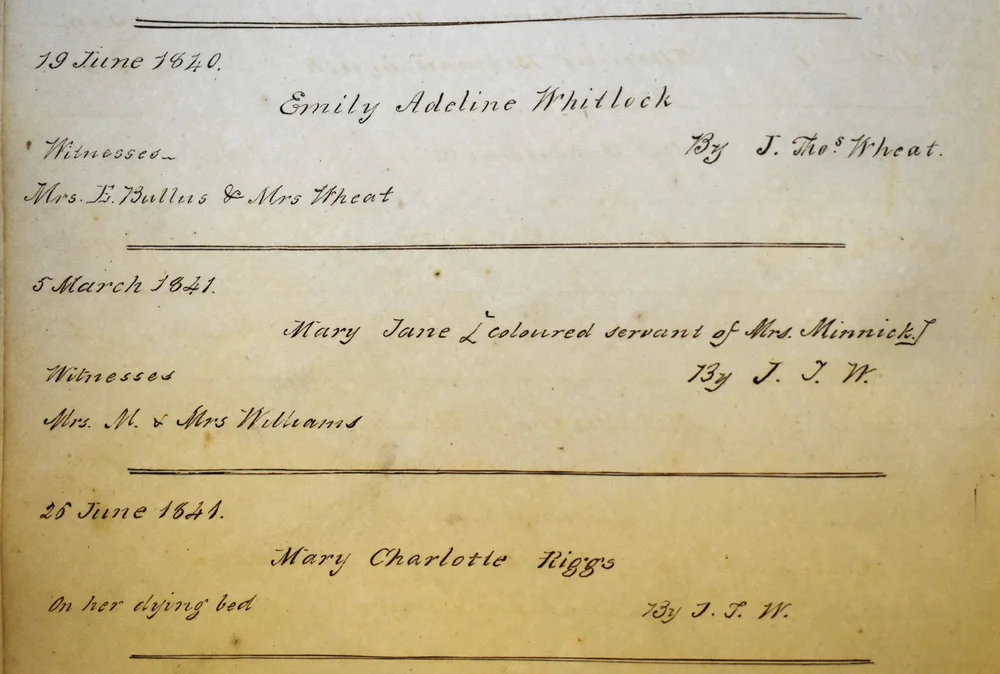 19 June 1840.
Emily Adeline Whitlock
Witnesses By J. Thos Wheat.
Mrs. E. Bullus & Mrs Wheat
5 March 1841.
Mary Jane [coloured servant of Mrs. Minnick.]
Witnesses By J. T. W.
Mrs. M. & Mrs Williams
June 1841.
Mary Charlotte Riggs
On her dying bed By J. T. W.